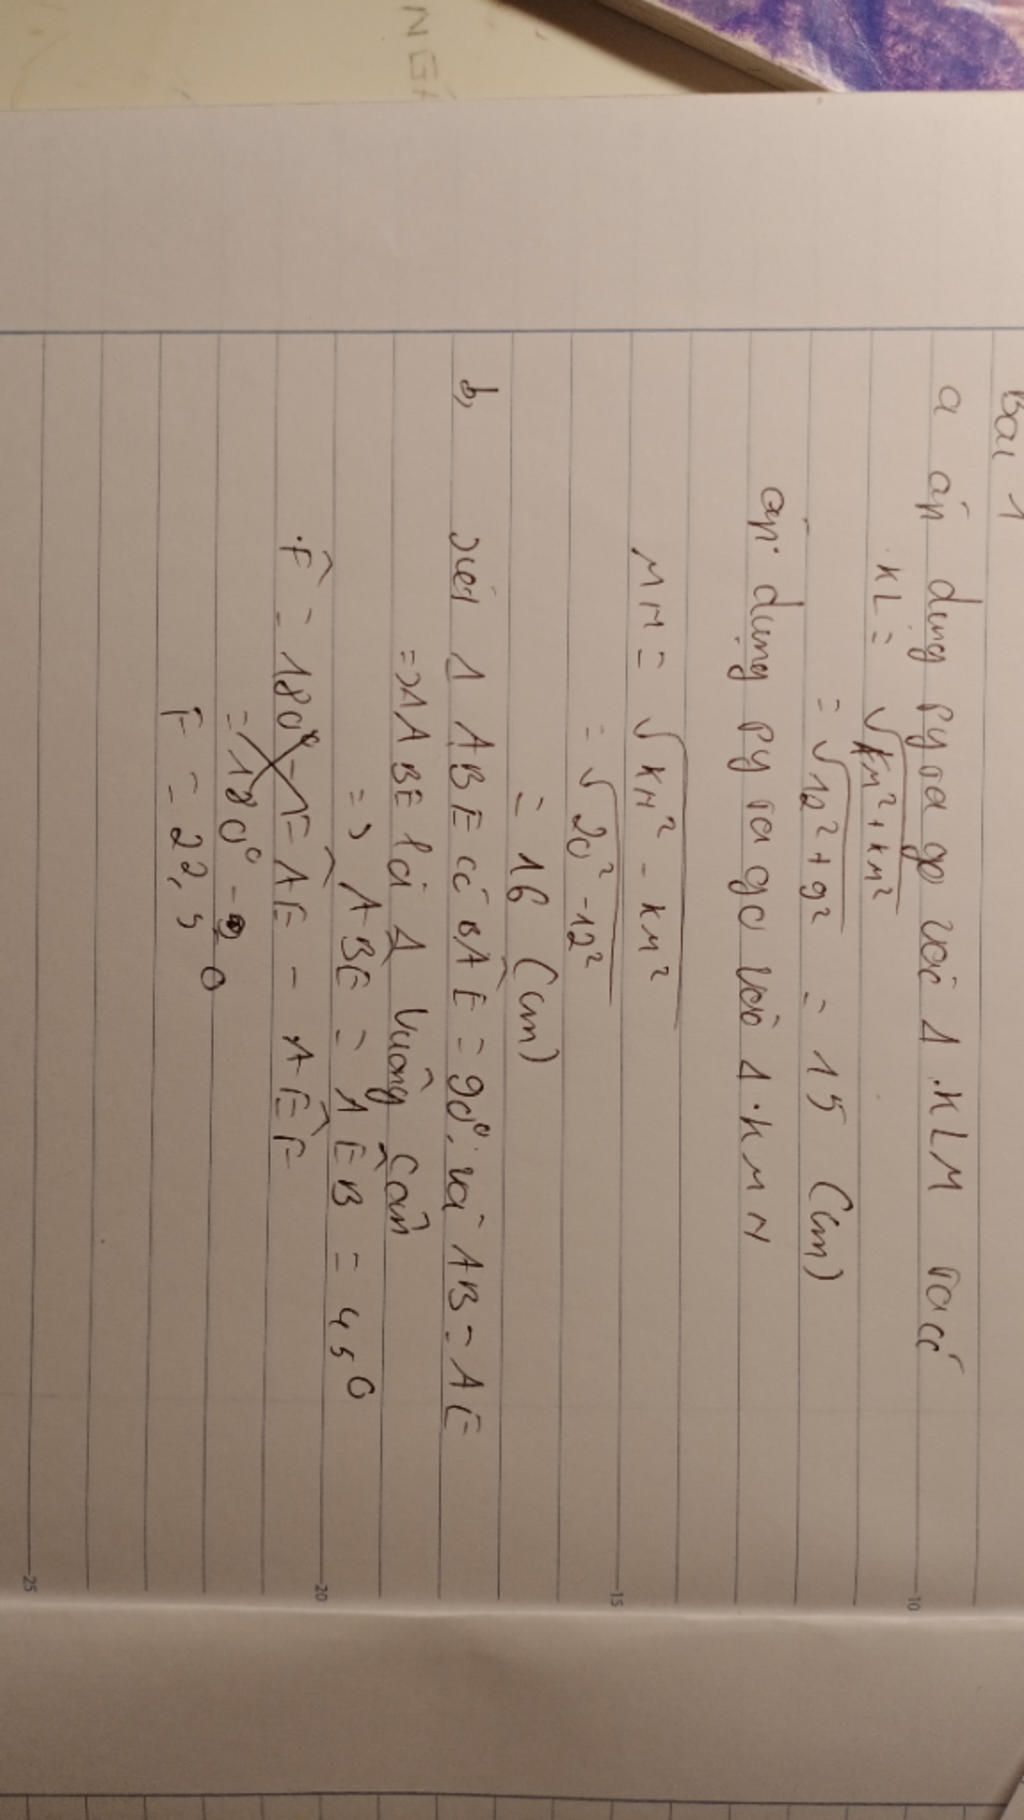 NGH
Bài 1
a áp dụng pytago với Δ KLM ta có
KL = √KM² + KM²
= √12² + 9² = 15 (cm)
áp dụng pytago với Δ KMN
MN = √KN² - KM²
= √20² - 12²
= 16 (cm)
b, xét Δ ABE có BÂE = 90° và AB = AE
=> Δ ABE là Δ vuông cân
=> ABE = AEB = 45°
F = 180° - FAE - AEF
= 180° -
F = 22,5
10
15
20
25